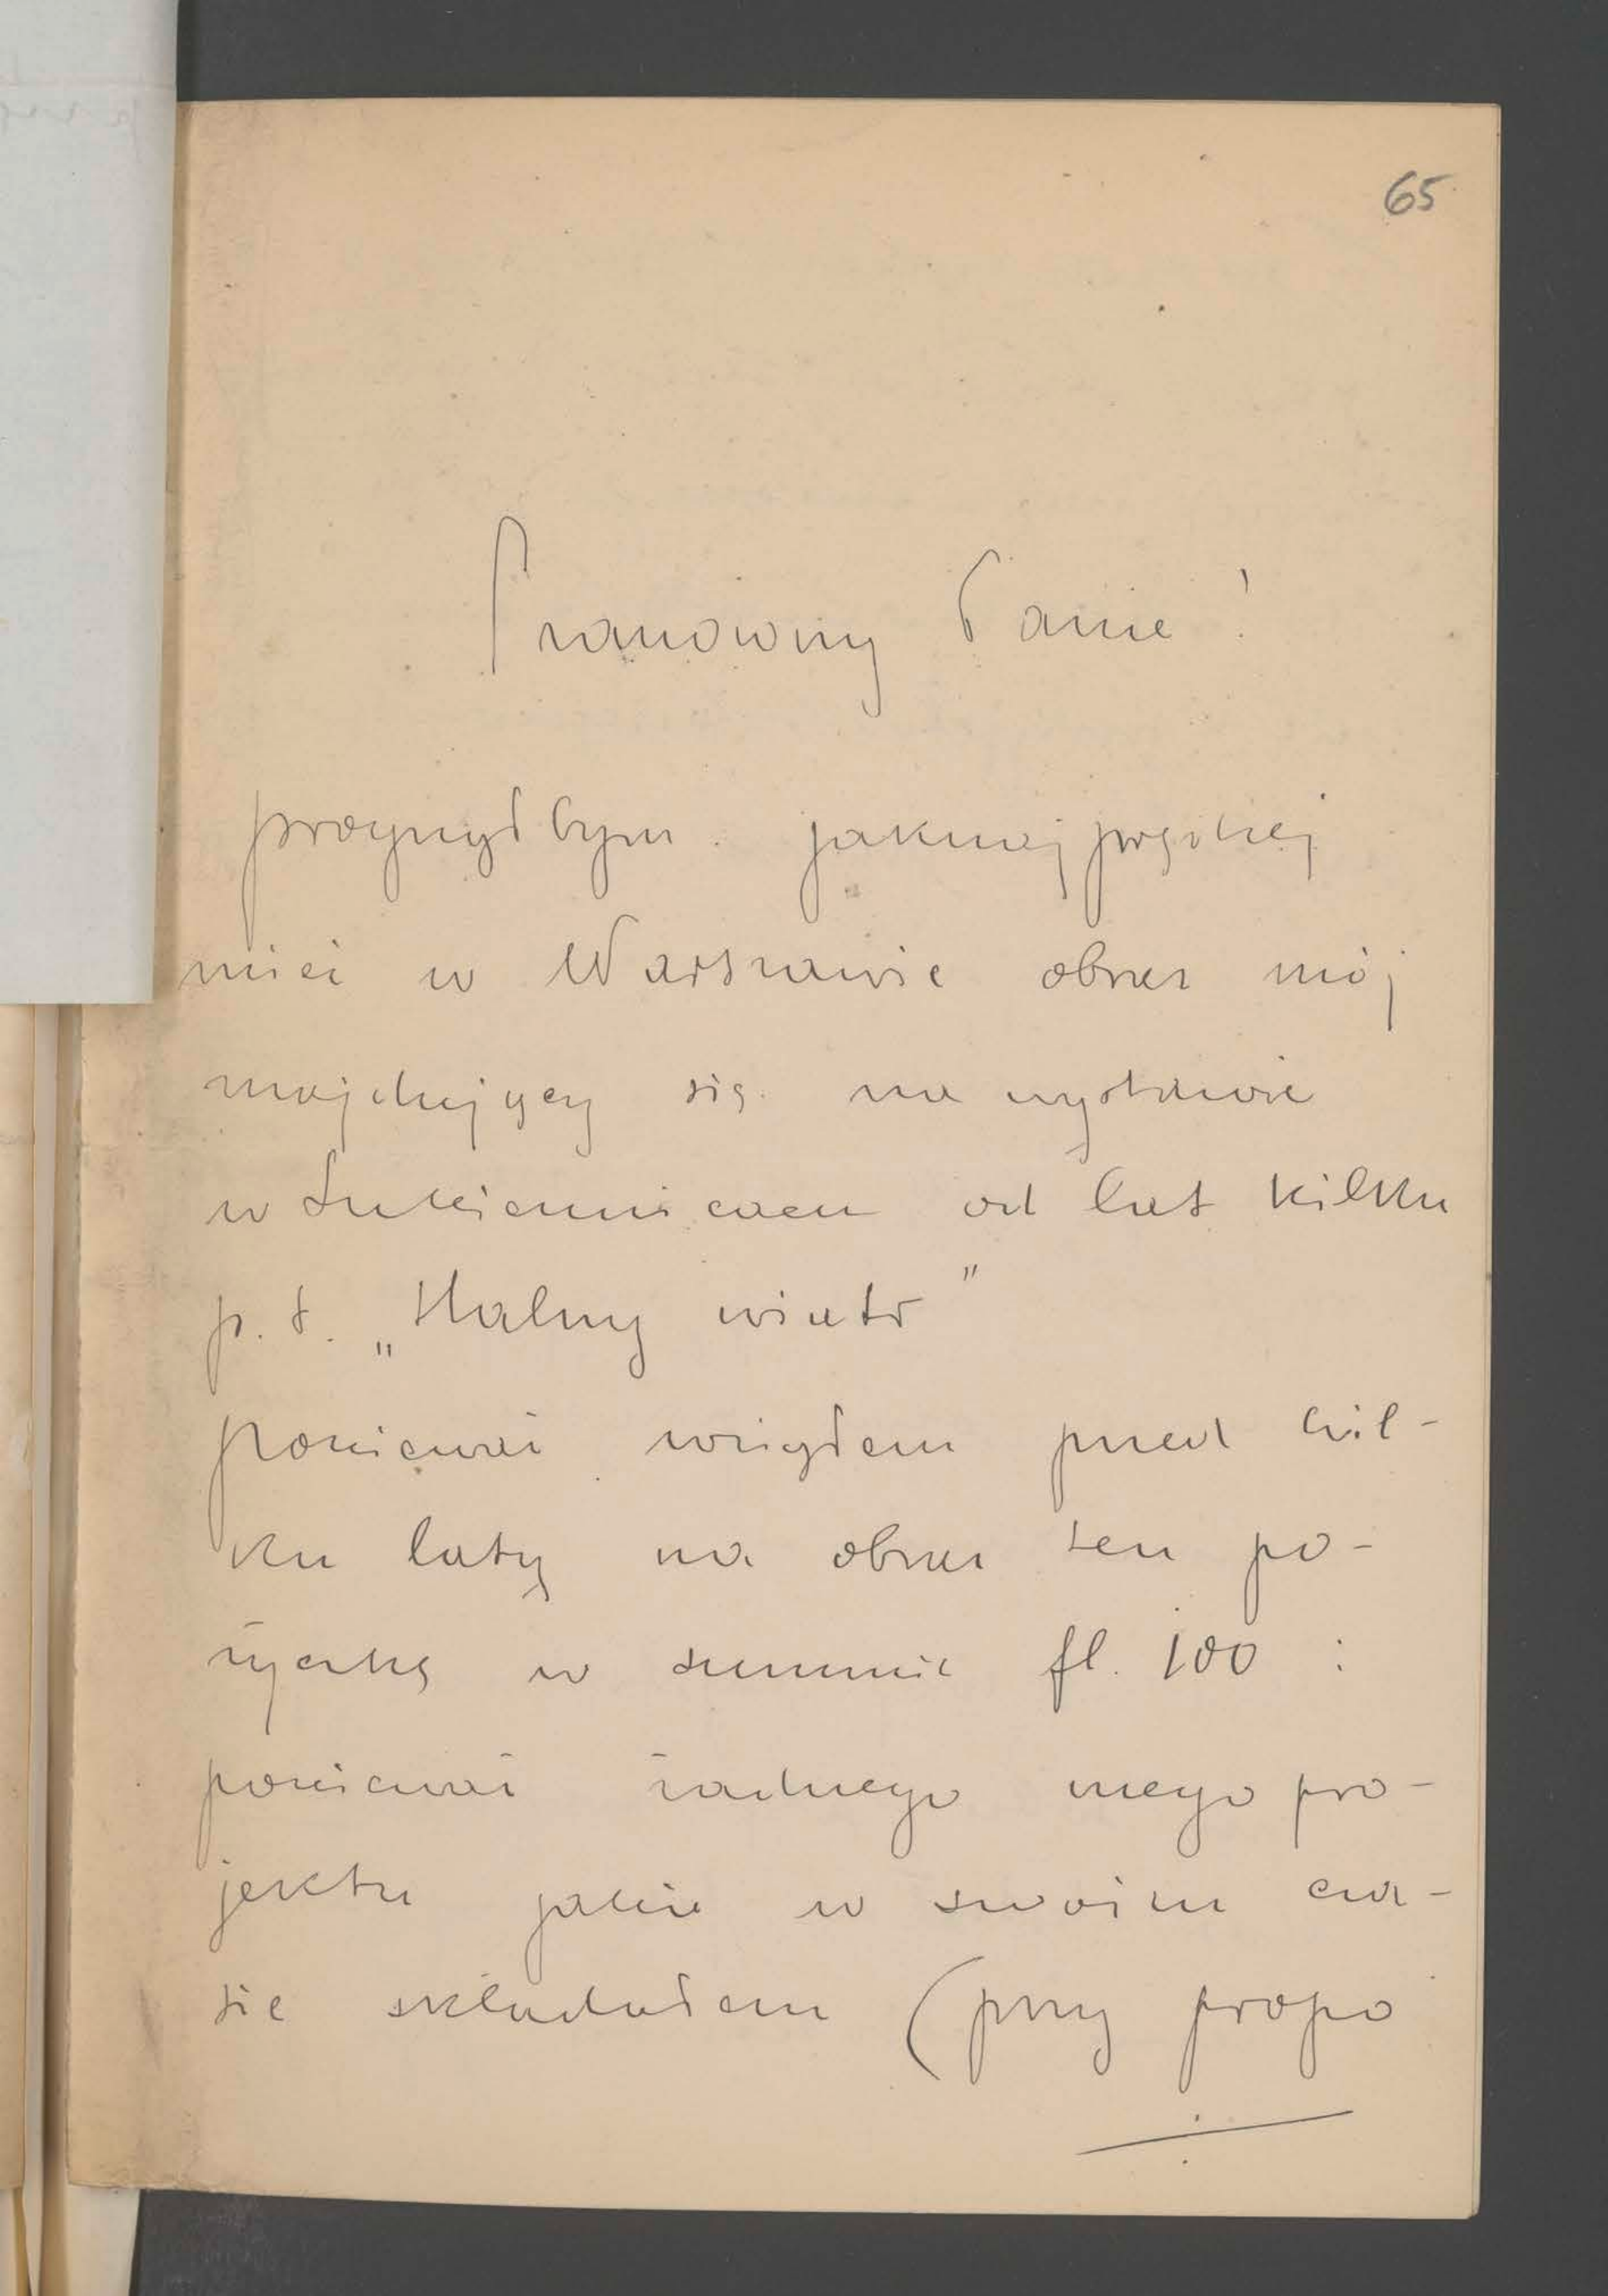 65
Szanowny Panie!
pragnąłbym jaknajprędzej
mieć w Warszawie obraz mój
znajdujący się na wystawie
w Sukiennicach od lat kilku
p.t. „Halny wiatr”
ponieważ wziąłem przed kil-
ku laty na obraz ten po-
życzkę w summie fl. 100:
ponieważ żadnego mego pro-
jektu jakie w swoim cza-
sie składałem (przy propo